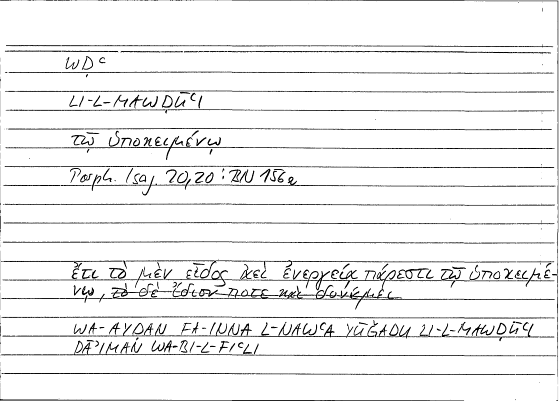 WḌᶜ
LI-L-MAWḌŪᶜI
τῷ ὑποκειμένῳ
Porph. Isag. 20,20 : BN 156a
ἔτι τὸ μὲν εἶδος ἀεὶ ἐνεργείᾳ πάρεστι τῷ ὑποκειμέ-
νῳ, τὸ δὲ ἴδιόν ποτε καὶ δυνάμει
WA-AYḌAN FA-INNA L-NAWᶜA YŪǦADU LI-L-MAWḌŪᶜI
DĀʾIMAN WA-BI-L-FIᶜLI